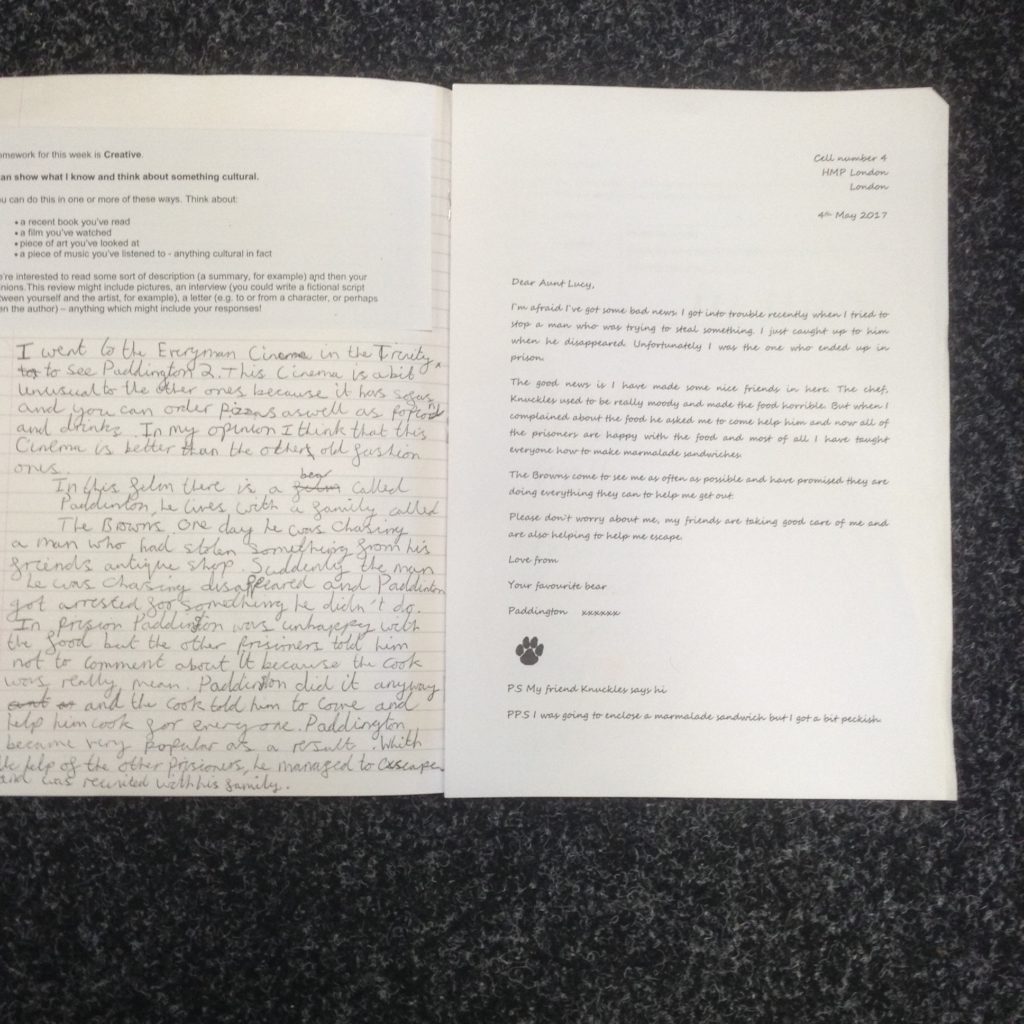 omework for this week is Creative.
an show what I know and think about something cultural.
u can do this in one or more of these ways. Think about:
• a recent book you've read
• a film you've watched
• piece of art you've looked at
• a piece of music you've listened to - anything cultural in fact
're interested to read some sort of description (a summary, for example) and then your
inions. This review might include pictures, an interview (you could write a fictional script
tween yourself and the artist, for example), a letter (e.g. to or from a character, or perhaps
en the author) – anything which might include your responses!
I went to the Everyman Cinema in the Trinity
to see Paddington 2. This Cinema is a bit
unusual to the other ones because it has sofas
and you can order pizzas aswell as popcorn
and drinks. In my opinion I think that this
Cinema is better than the others, old fashion
ones.
In this film there is a bear called
Paddinton, he lives with a family called
The Browns. One day he was chasing
a man who had stolen something from his
friends antique shop. Suddenly the man
he was chasing disappeared and Paddinton
got arrested for something he didn't do.
In prision Paddington was unhappy with
the food but the other prisioners told him
not to comment about it because the cook
was really mean. Paddinton did it anyway
and the cook told him to come and
help him cook for everyone. Paddington
became very popular as a result. Whith
the help of the other prisioners, he managed to escape
and was reunited with his family.
Cell number 4
HMP London
London
4th May 2017
Dear Aunt Lucy,
I'm afraid I've got some bad news. I got into trouble recently when I tried to
stop a man who was trying to steal something. I just caught up to him
when he disappeared. Unfortunately I was the one who ended up in
prison.
The good news is I have made some nice friends in here. The chef,
Knuckles used to be really moody and made the food horrible. But when I
complained about the food he asked me to come help him and now all of
the prisoners are happy with the food and most of all I have taught
everyone how to make marmalade sandwiches.
The Browns come to see me as often as possible and have promised they are
doing everything they can to help me get out.
Please don't worry about me, my friends are taking good care of me and
are also helping to help me escape.
Love from
Your favourite bear
Paddington xxxxxx
P.S My friend Knuckles says hi
PP.S I was going to enclose a marmalade sandwich but I got a bit peckish.